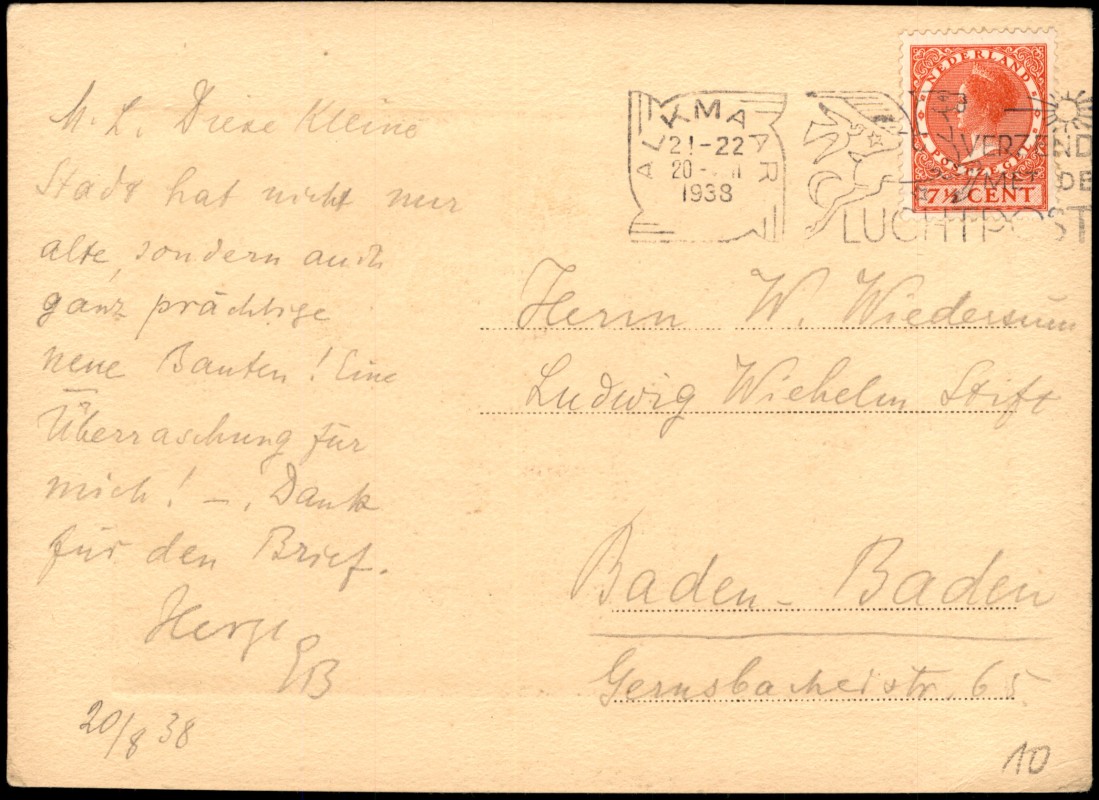 M. L. Diese Kleine
Stadt hat nicht nur
alte, sondern auch
ganz prächtige
neue Bauten! Eine
Überraschung für
mich! –. Dank
für den Brief.
EB
20/8 38
ALKMAAR
21-22
20
1938
VERZEND
MET DE
LUCHTPOST
NEDERLAND
POSTZEGEL
7½ CENT
Herrn W. Wiedersum
Ludwig Wilhelm Stift
Baden-Baden
Gernsbacherstr. 65
10